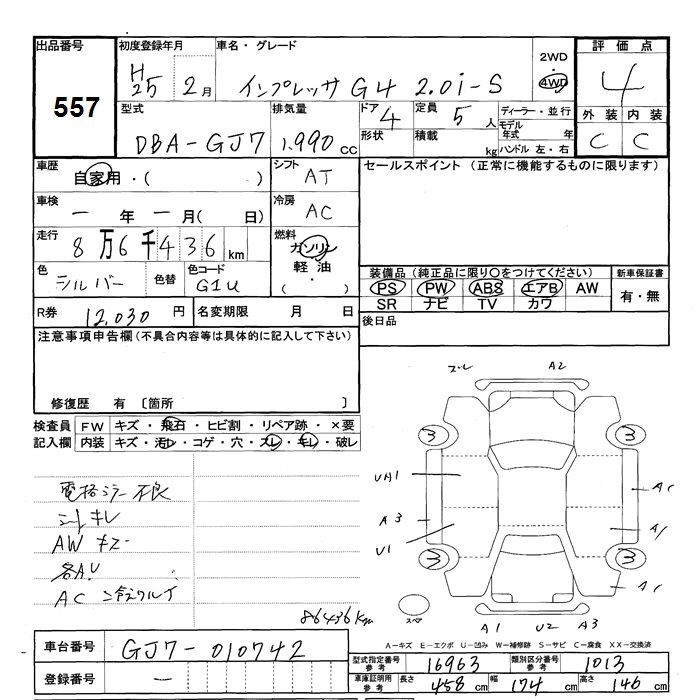 出品番号 557
初度登録年月 H25 2月
車名・グレード インプレッサ G4 2.0i-S
2WD 4WD
評価点 4
外装 C 内装 C
型式 DBA-GJ7
排気量 1,990 cc
ドア 4 形状
定員 5人 積載 kg
ディーラー・並行
モデル年式 年
ハンドル 左・右
車歴 自家用・( )
シフト AT
車検 一年 一月( 日)
冷房 AC
走行 8万6千436km
燃料 ガソリン 軽油 ・( )
色 シルバー 色替
色コード G1U
R券 12,030円
名変期限 月 日
セールスポイント (正常に機能するものに限ります)
装備品 (純正品に限り○をつけてください)
PS PW ABS エアB AW
SR ナビ TV カワ
新車保証書
有・無
後日品
注意事項申告欄(不具合内容等は具体的に記入して下さい)
修復歴 有 〔箇所 〕
検査員記入欄
FW キズ・飛石・ヒビ割・リペア跡・×要
内装 キズ・汚レ・コゲ・穴・スレ・キレ・破レ
電格ミラー不良
シートキレ
AW キズ
各A.U
AC
86436km
ズレ A2
3 3
UA1 A1
A3 A1
U1
3 3
スペア
A1 U2 A3
A−キズ E−エクボ U−凹み W−補修跡 S−サビ C−腐食 XX−交換済
車台番号 GJ7-010742
登録番号 一
型式指定番号 参考 16963
類別区分番号 参考 1013
車庫証明用 参考 長さ 458cm 幅 174cm 高さ 146cm